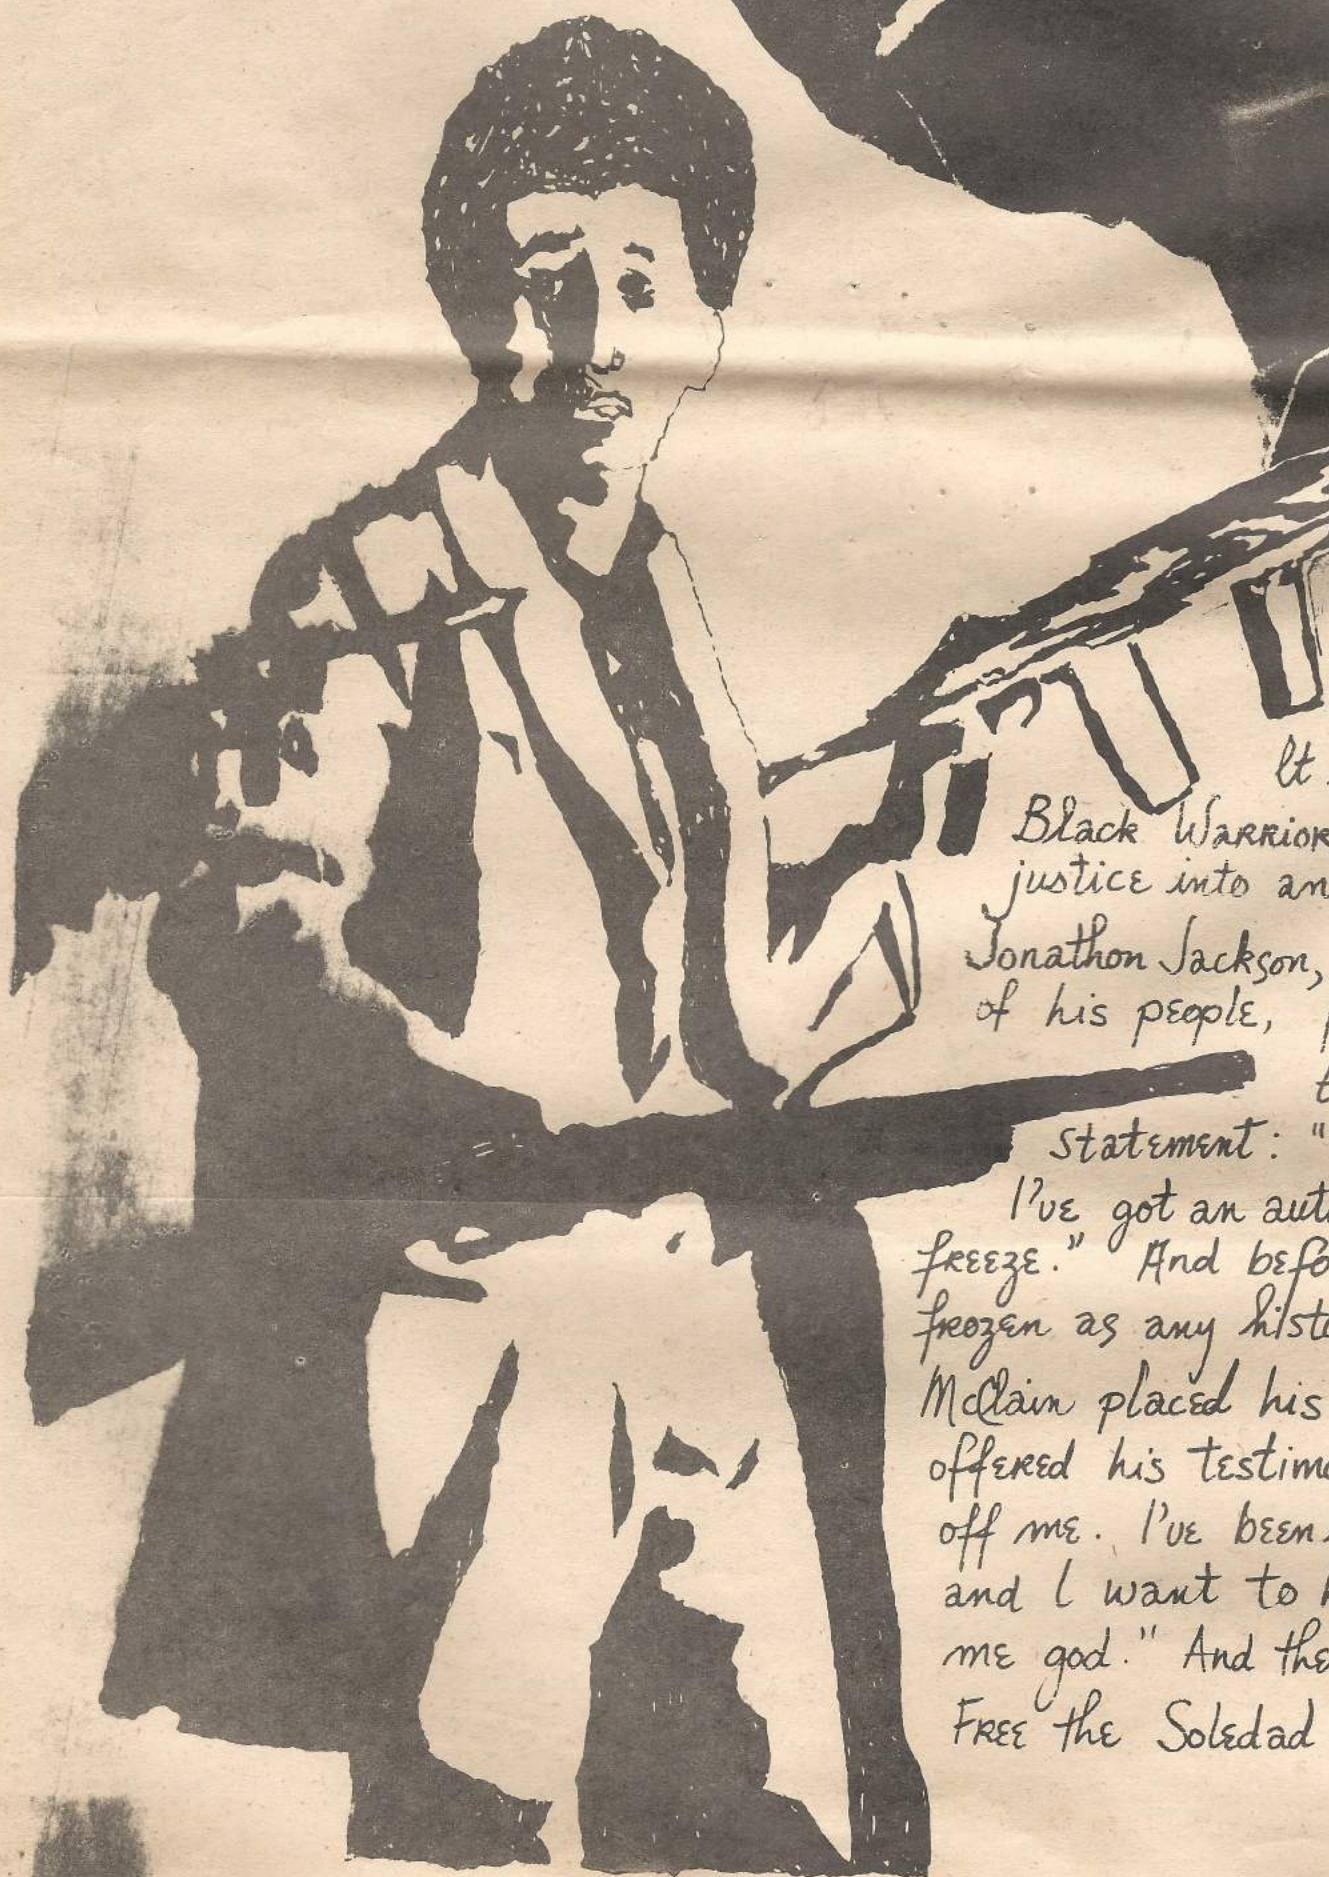 It
Black Warrior
justice into an
Jonathon Jackson,
of his people,
statement: "
I've got an aut
freeze." And befo
frozen as any histo
McClain placed his
offered his testimo
off me. I've been
and I want to h
me god." And the
Free the Soledad